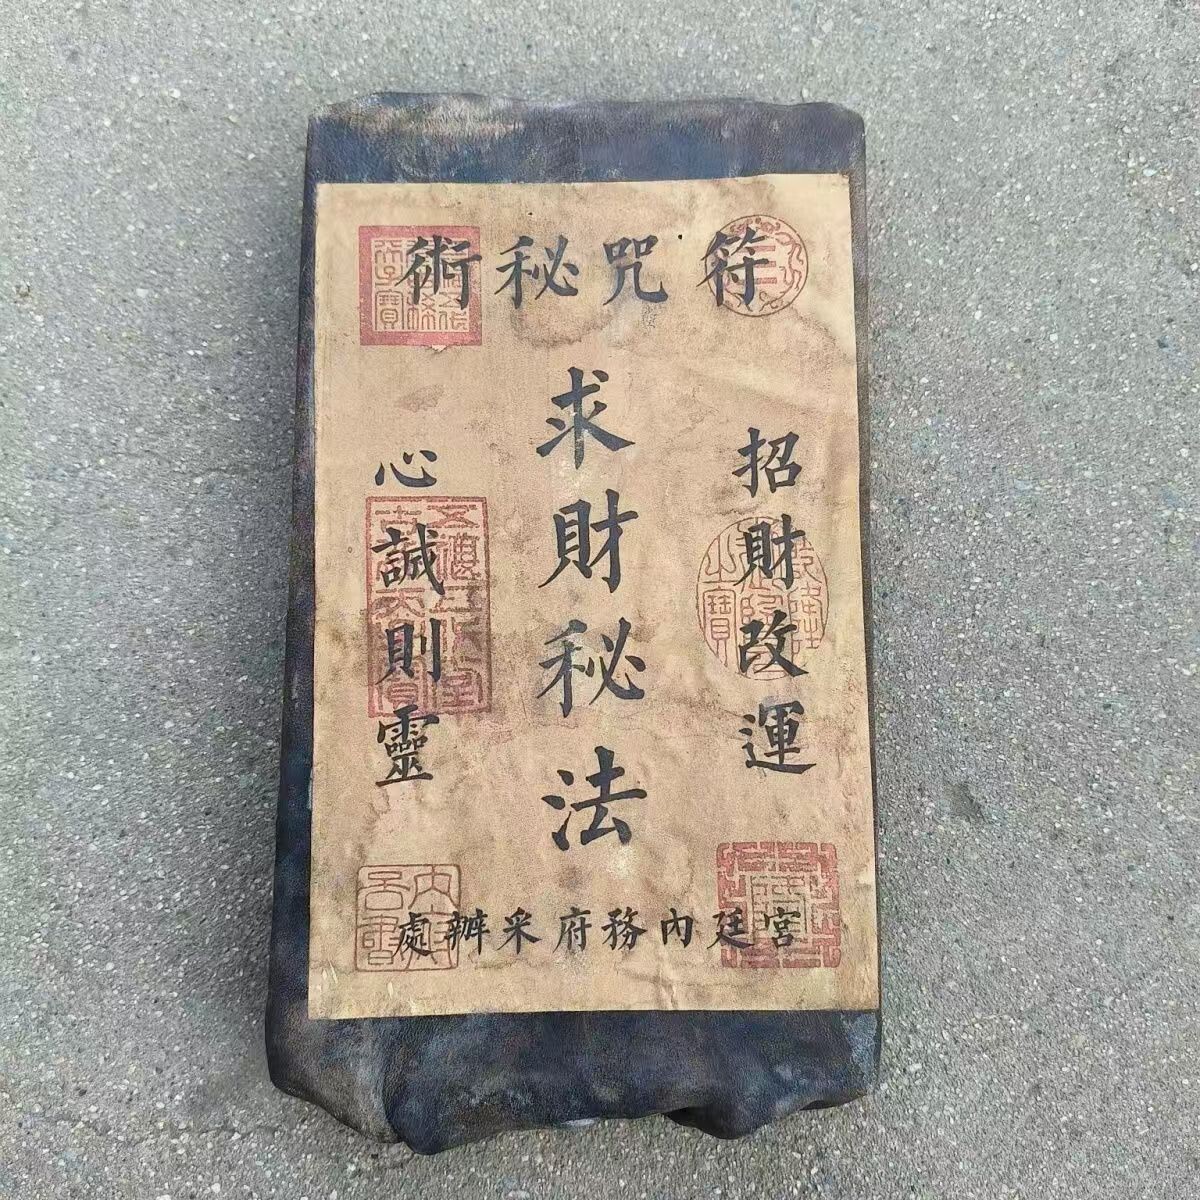 符咒秘術
招財改運
求財秘法
心誠則靈
宮廷內務府采辦處